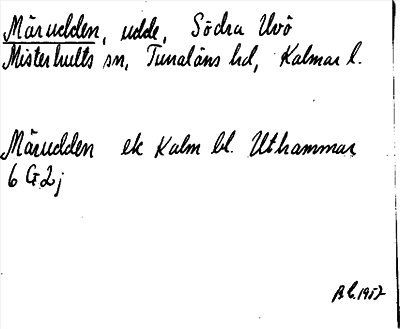 Märudden, udde, Södra Uvö
Misterhults sn, Tunaläns hd, Kalmar l.
Märudden ek Kalm bl. Uthammar
6 G2j
B.C. 1957